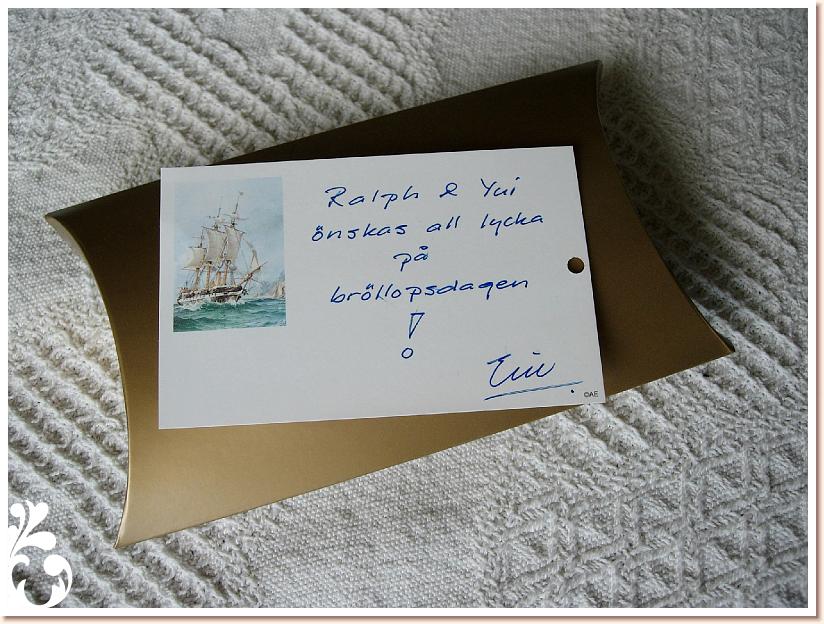 Ralph & Yui
önskas all lycka
på
bröllopsdagen
!
©AE